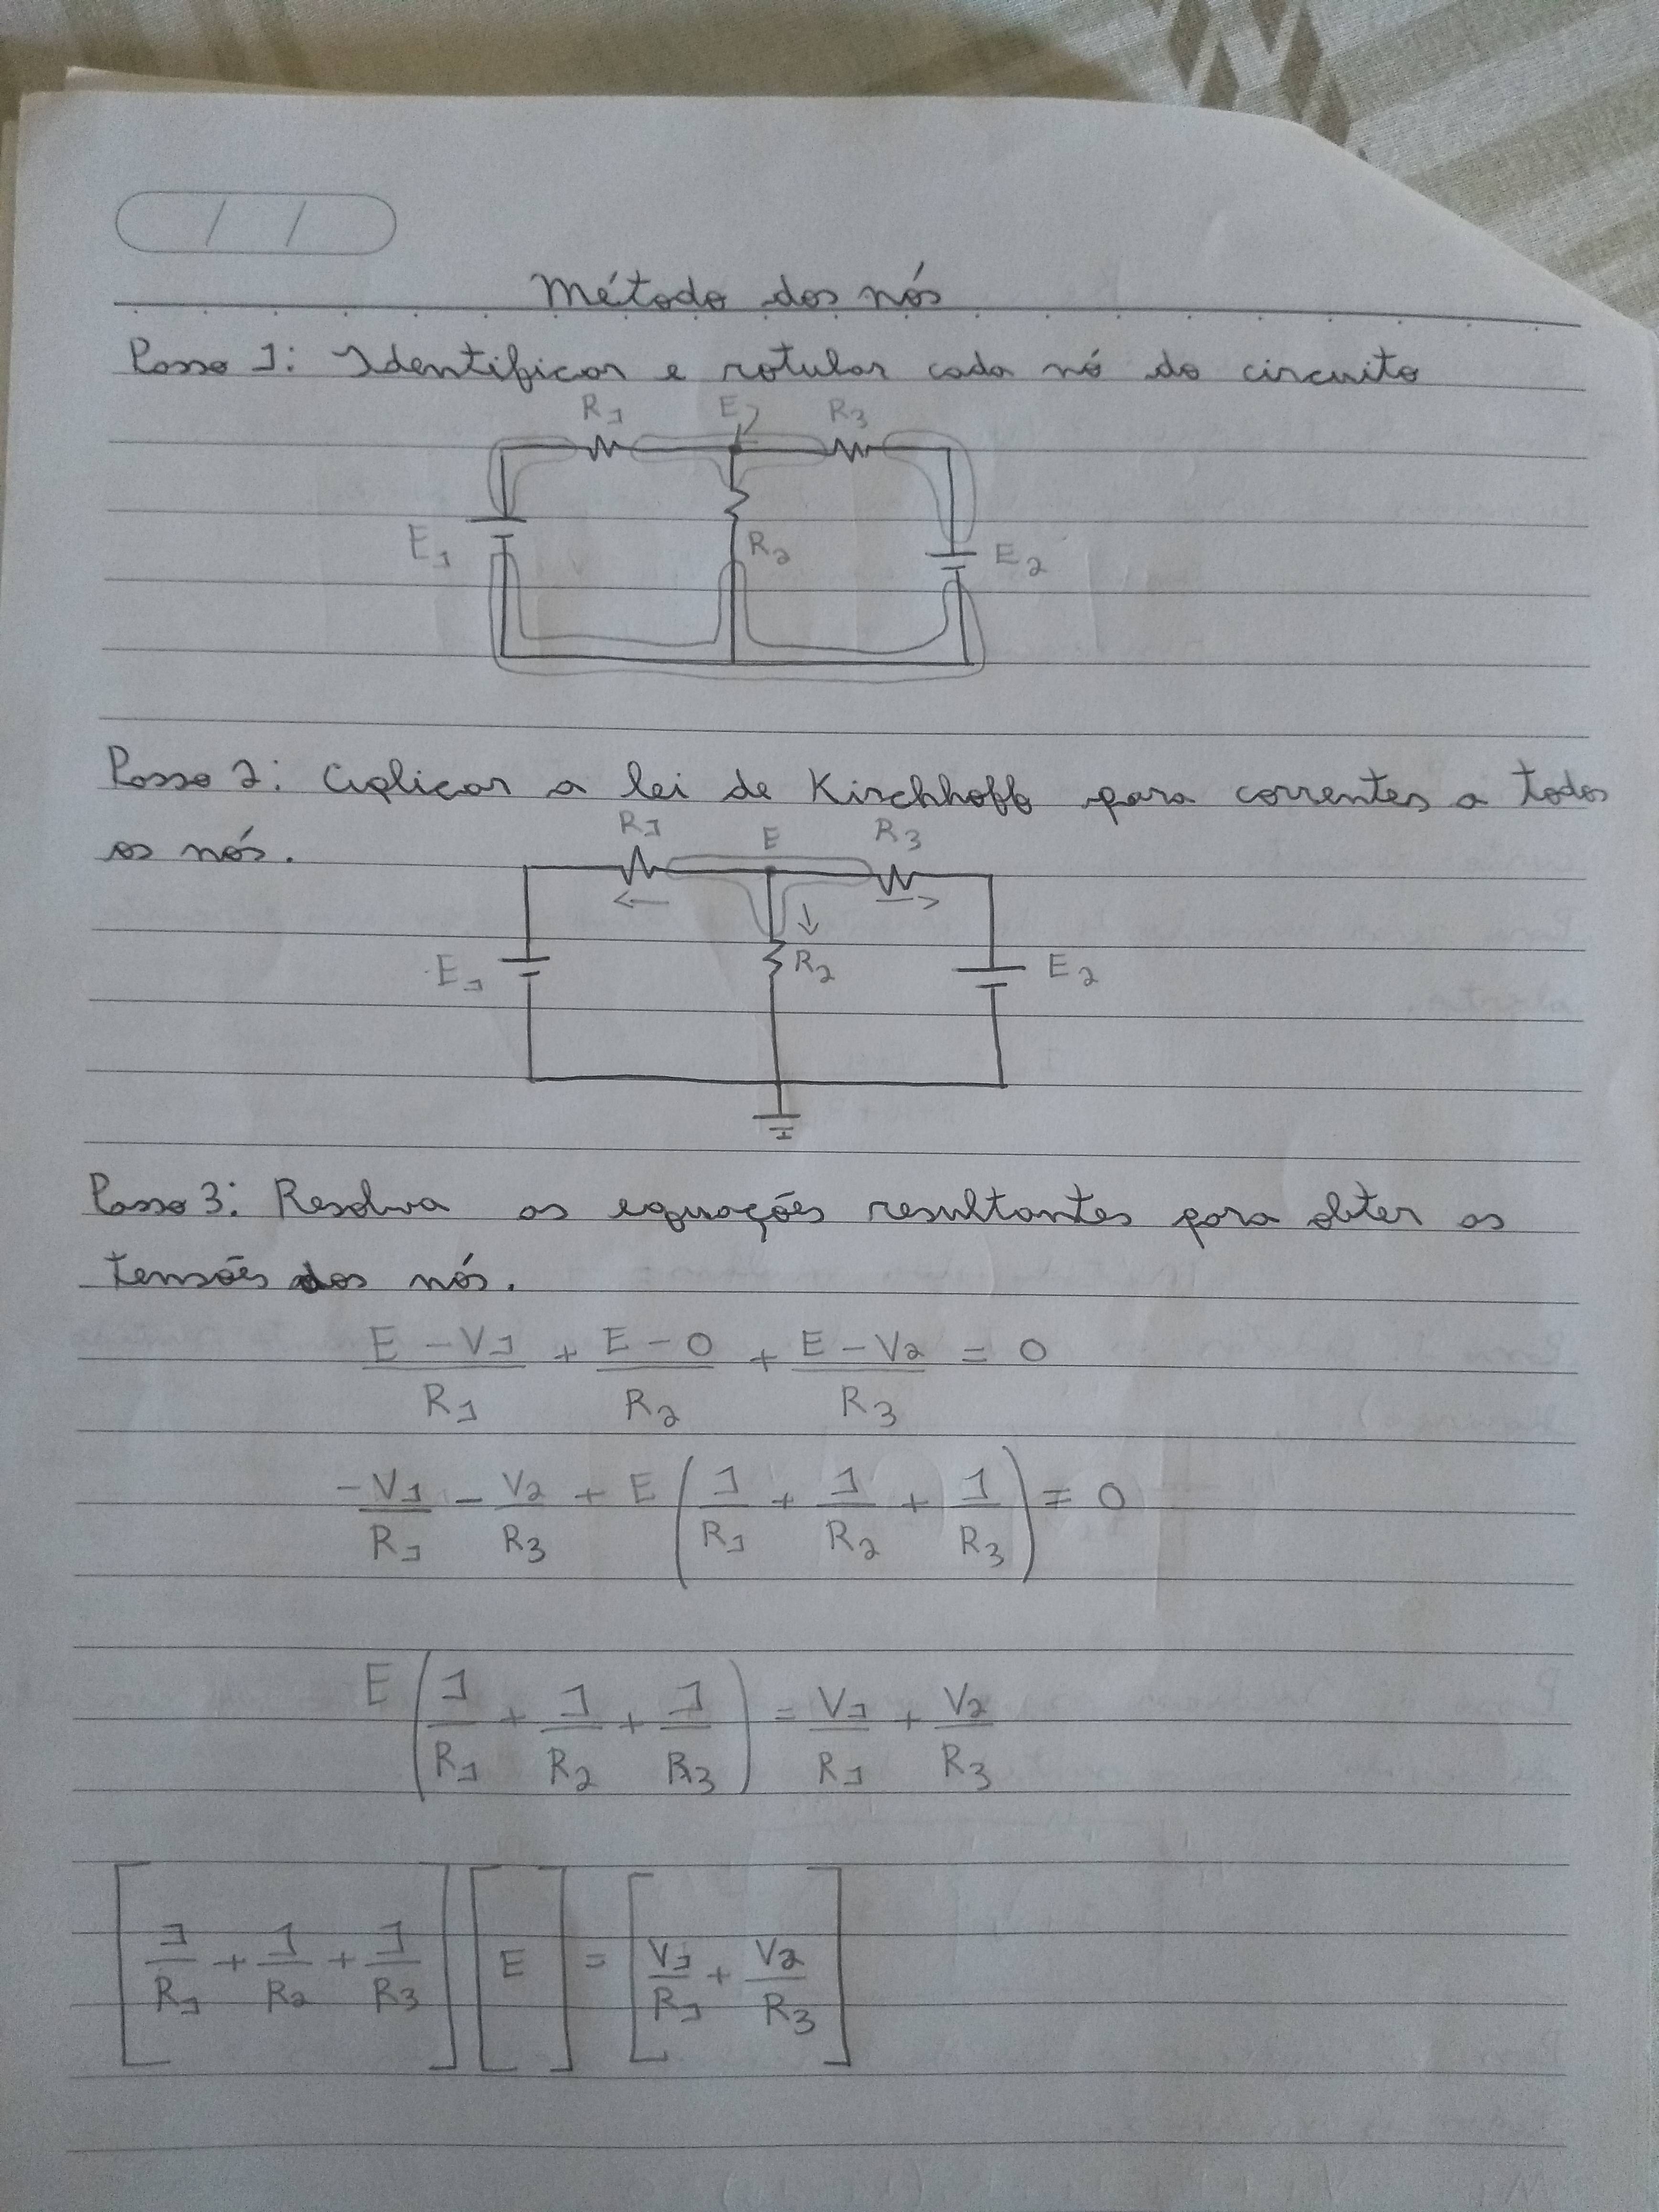 / /
Método dos nós
Passo 1: Identificar e rotular cada nó do circuito
R1 E R3
E1 R2 E2
Passo 2: Aplicar a lei de Kirchhoff para correntes a todos
os nós.
R1 E R3
E1 R2 E2
Passo 3: Resolva as equações resultantes para obter as
tensões dos nós.
E - V1 / R1 + E - 0 / R2 + E - V2 / R3 = 0
-V1 / R1 - V2 / R3 + E ( 1 / R1 + 1 / R2 + 1 / R3 ) = 0
E ( 1 / R1 + 1 / R2 + 1 / R3 ) = V1 / R1 + V2 / R3
[ 1 / R1 + 1 / R2 + 1 / R3 ] [ E ] = [ V1 / R1 + V2 / R3 ]